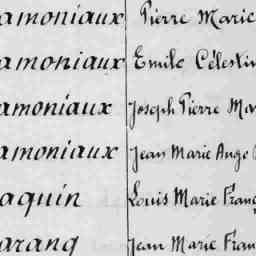 amoniaux Pierre Marie
amoniaux Emile Célestin
amoniaux Joseph Pierre Mar
amoniaux Jean Marie Ange
aquin Louis Marie Franç
arang Jean Marie Fran